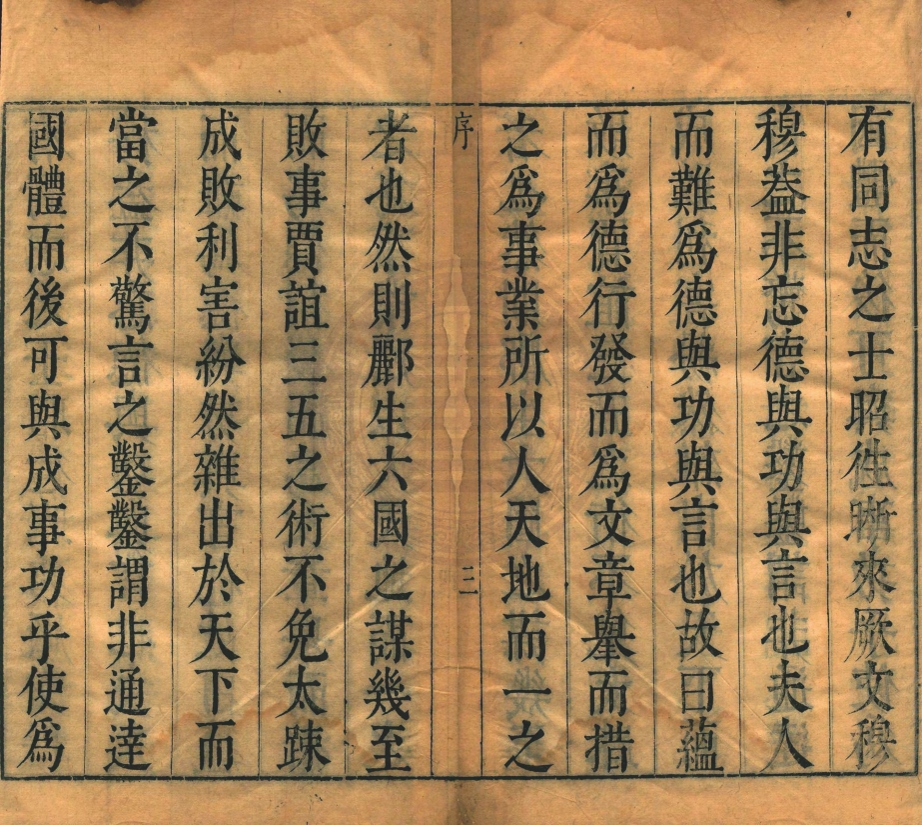 有同志之士昭徃晣來厥文穆
穆葢非忘德與功與言也夫人
而難爲德與功與言也故曰蘊
而爲德行發而爲文章舉而措
之爲事業所以人天地而一之
序
三
者也然則酈生六國之謀幾至
敗事賈誼三五之術不免太踈
成敗利害紛然雜出於天下而
當之不驚言之鑿鑿謂非通達
國體而後可與成事功乎使爲